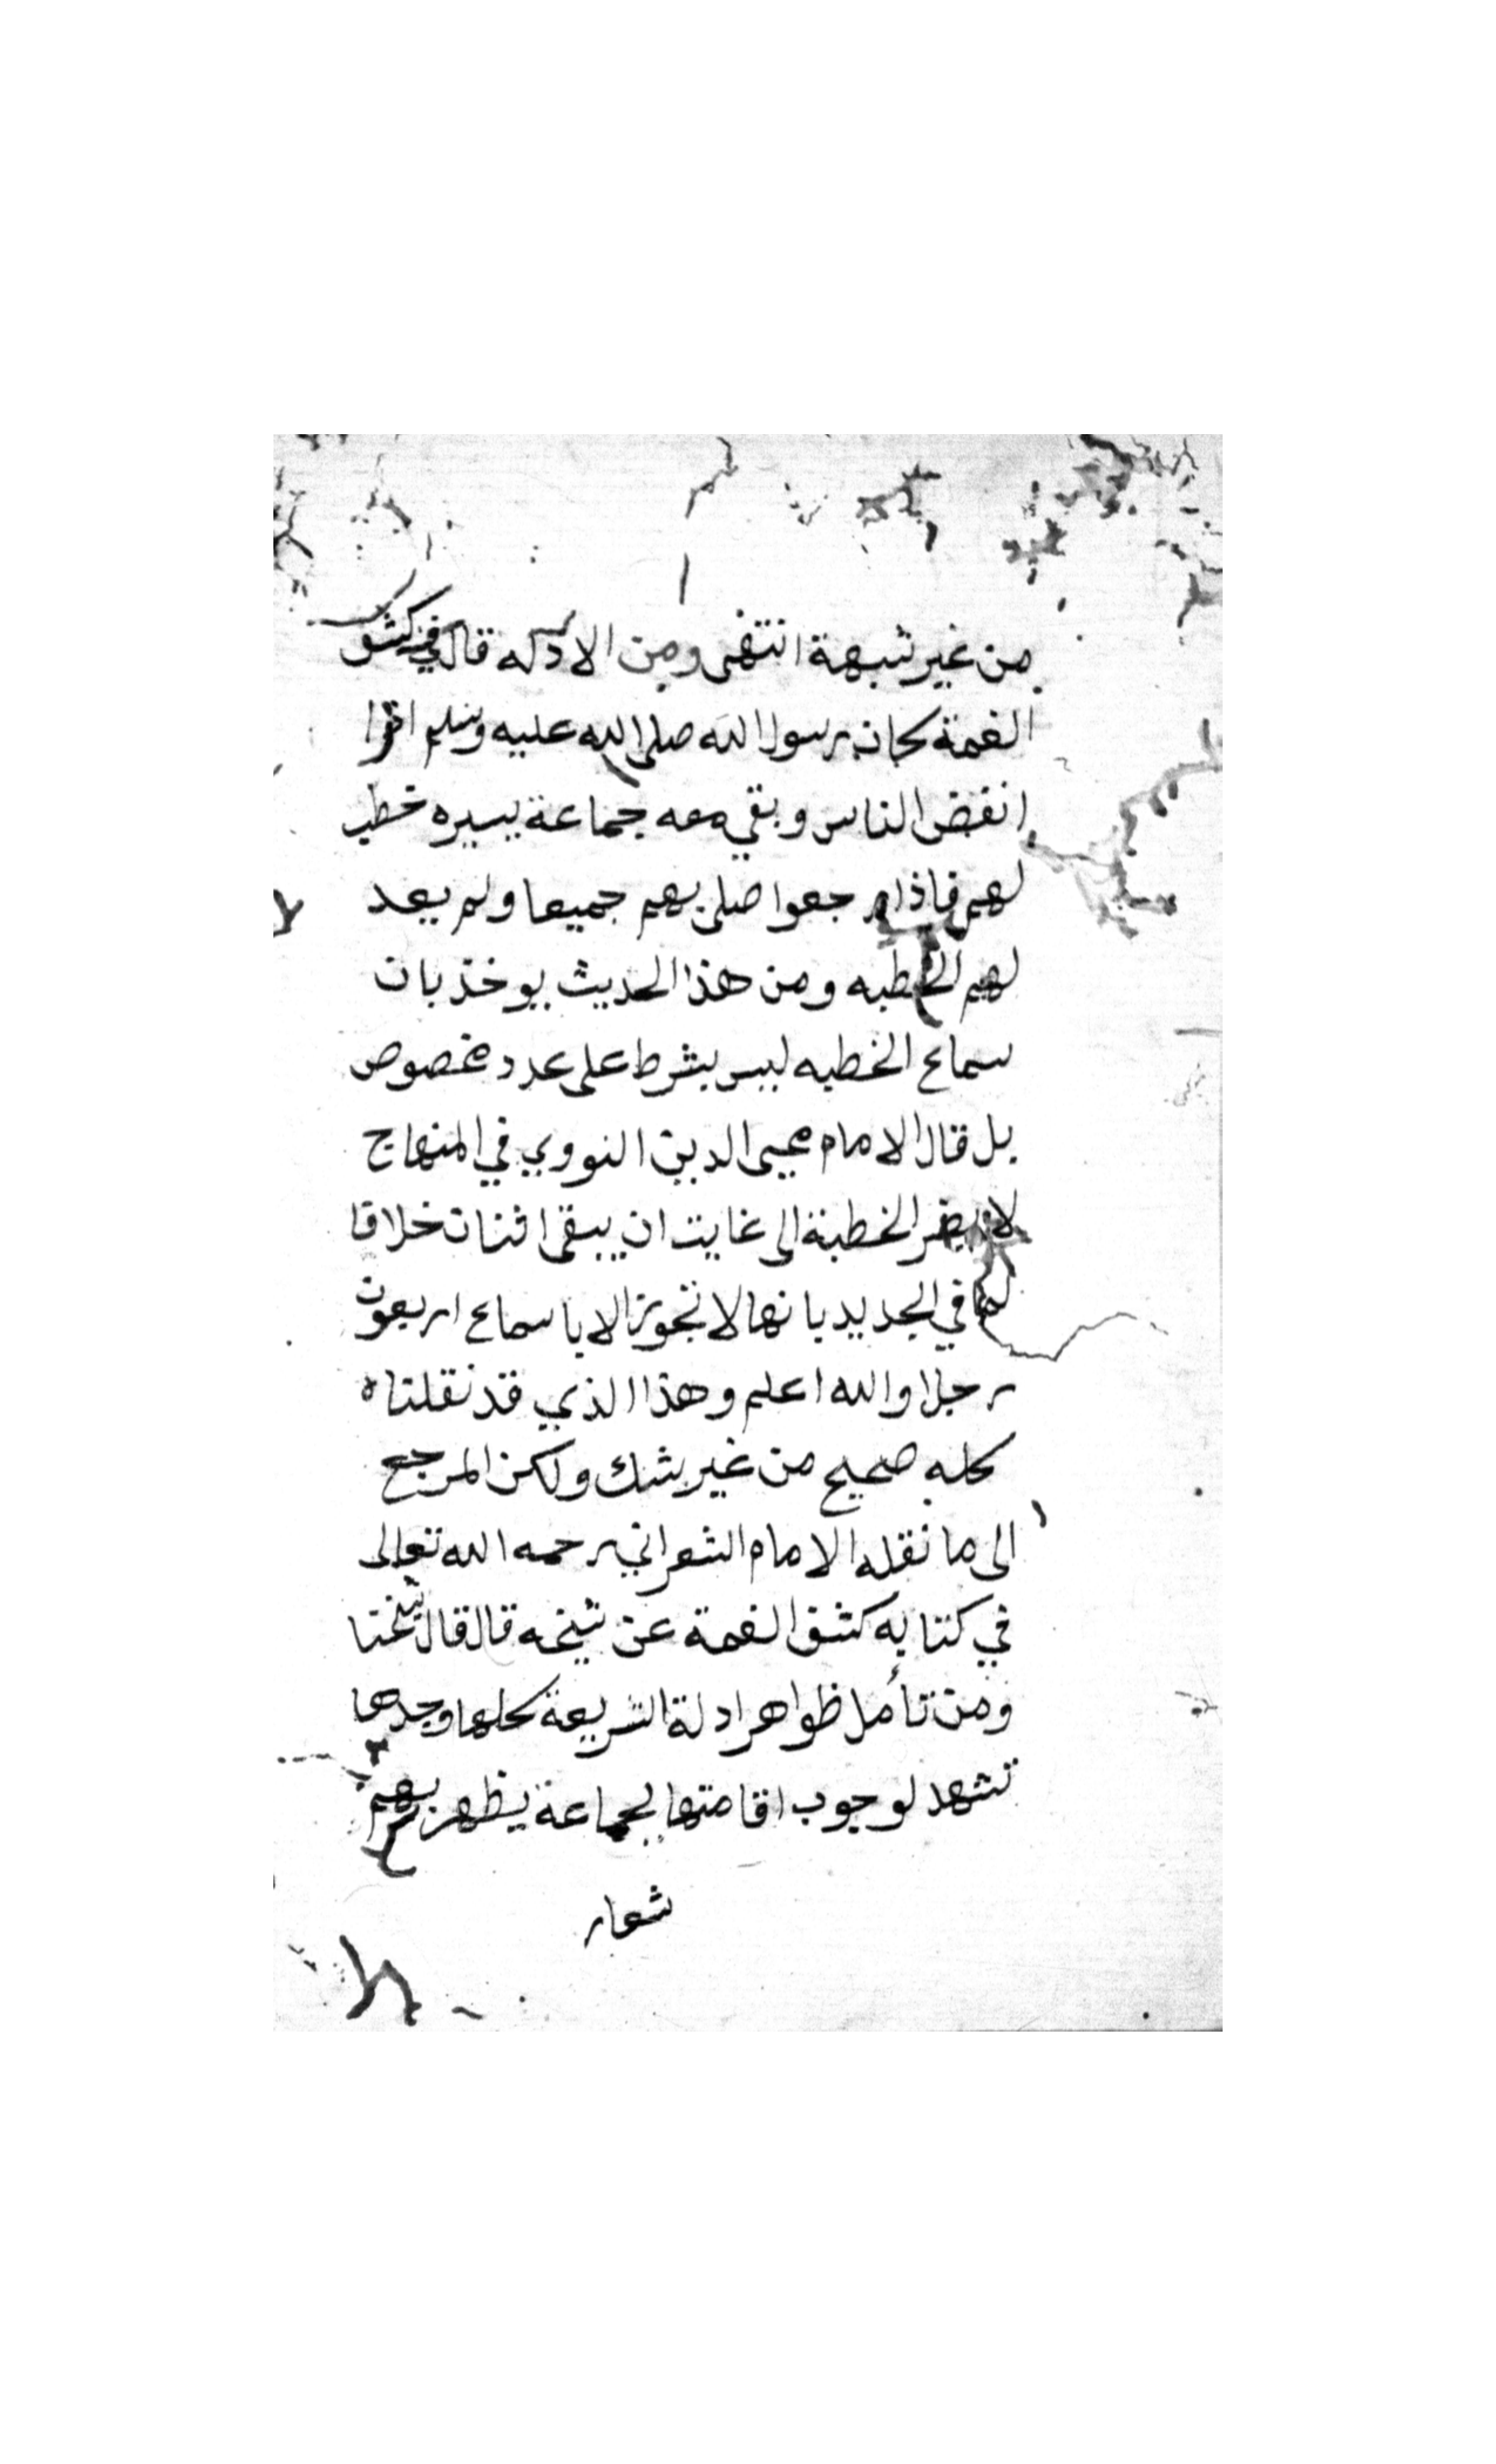 من غير شبهة انتهى ومن الادله قال في كشف
الغمة كان رسول الله صلى الله عليه وسلم اذا
انفض الناس وبقي معه جماعة يسيره خطب
لهم فاذا رجعوا صلى بهم جميعا ولم يعد
لهم الخطبه ومن هذا الحديث يوخذ بان
سماع الخطبه ليس بشرط على عدد مخصوص
بل قال الامام محيى الدين النووي في المنهاج
لا يضر الخطبة الى غايت ان يبقى اثنان خلافا
لما في الجديد بانها لا تجوز الا باسماع اربعون
رجلا والله اعلم وهذا الذي قد نقلناه
كله صحيح من غير شك ولكن المرجع
الى ما نقله الامام الشعراني رحمه الله تعالى
في كتابه كشف الغمة عن شيخه قال قال شيخنا
ومن تأمل ظواهر ادلة الشريعة كلها وجدها
تشهد لوجوب اقامتها لجماعة يظهر بهم
شعار